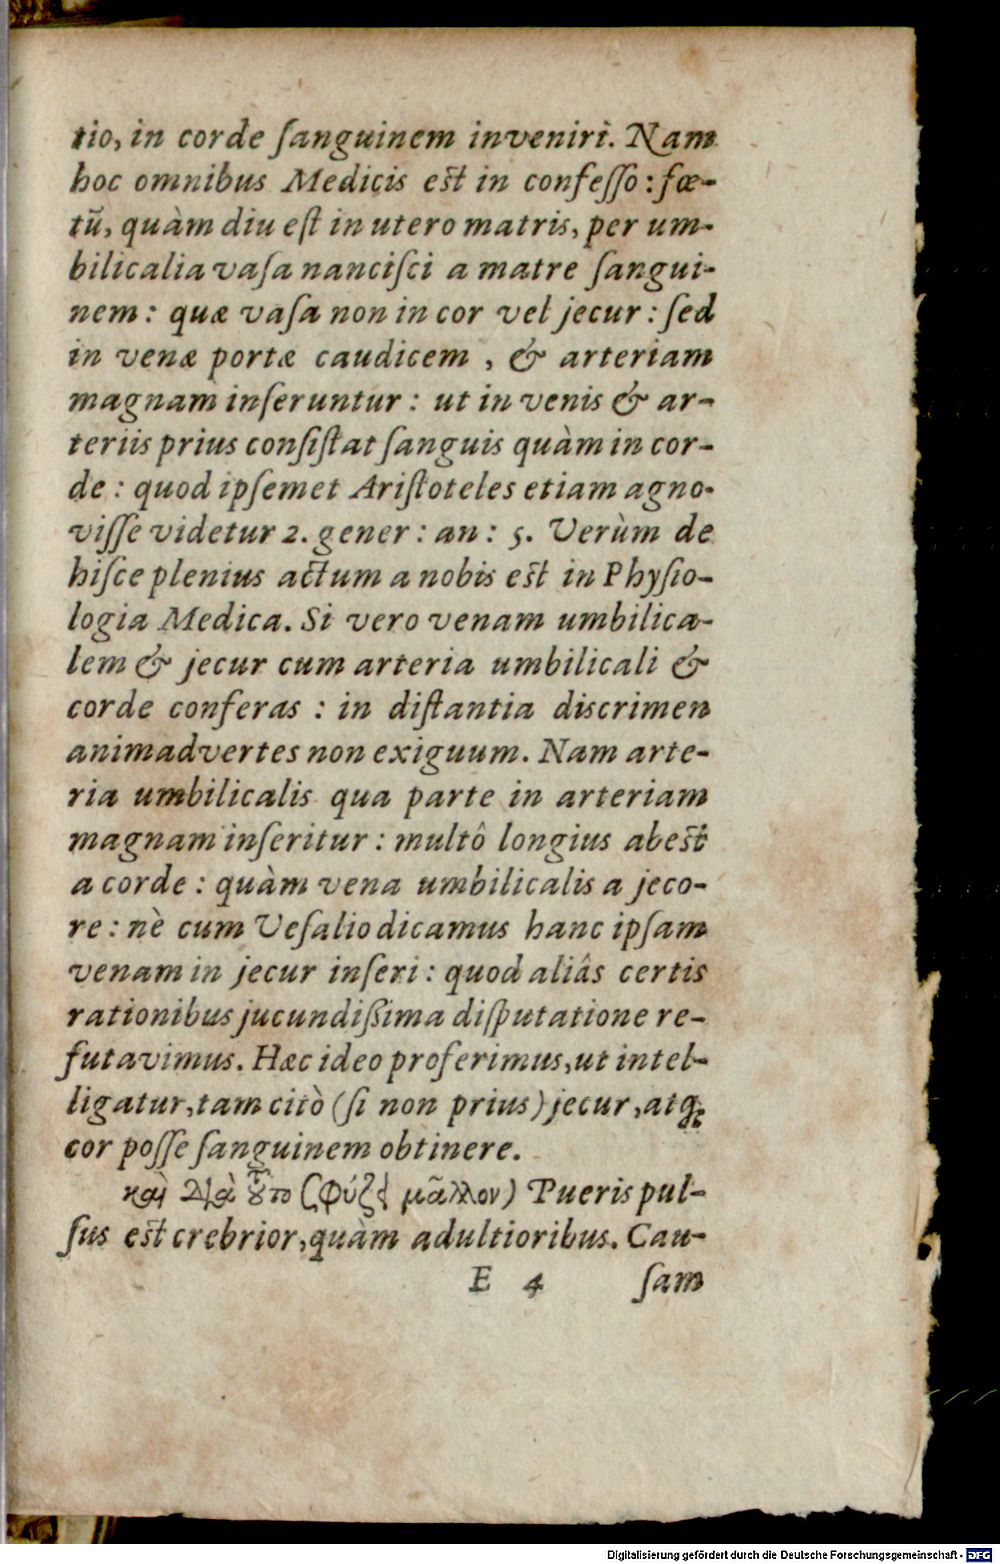 tio, in corde ſanguinem inveniri. Nam
hoc omnibus Medicis eſt in confeſſo : fœ-
tū, quàm diu eſt in utero matris, per um-
bilicalia vaſa nanciſci a matre ſangui-
nem : quæ vaſa non in cor vel jecur : ſed
in venæ portæ caudicem , & arteriam
magnam inſeruntur : ut in venis & ar-
teriis prius conſiſtat ſanguis quàm in cor-
de : quod ipſemet Ariſtoteles etiam agno-
viſſe videtur 2. gener : an : 5. Verùm de
hiſce plenius actum a nobis eſt in Phyſio-
logia Medica. Si vero venam umbilica-
lem & jecur cum arteria umbilicali &
corde conferas : in diſtantia discrimen
animadvertes non exiguum. Nam arte-
ria umbilicalis qua parte in arteriam
magnam inſeritur : multô longius abeſt
a corde : quàm vena umbilicalis a jeco-
re : nè cum Veſalio dicamus hanc ipſam
venam in jecur inſeri : quod aliâs certis
rationibus jucundiſſima diſputatione re-
futavimus. Hæc ideo proferimus, ut intel-
ligatur, tam citò (ſi non prius) jecur, atq;
cor poſſe ſanguinem obtinere.
καὶ διὰ τοῦτο (φύζει μᾶλλον) Pueris pul-
ſus eſt crebrior, quàm adultioribus. Cau-
E 4 ſam
Digitalisierung gefördert durch die Deutsche Forschungsgemeinschaft - DFG